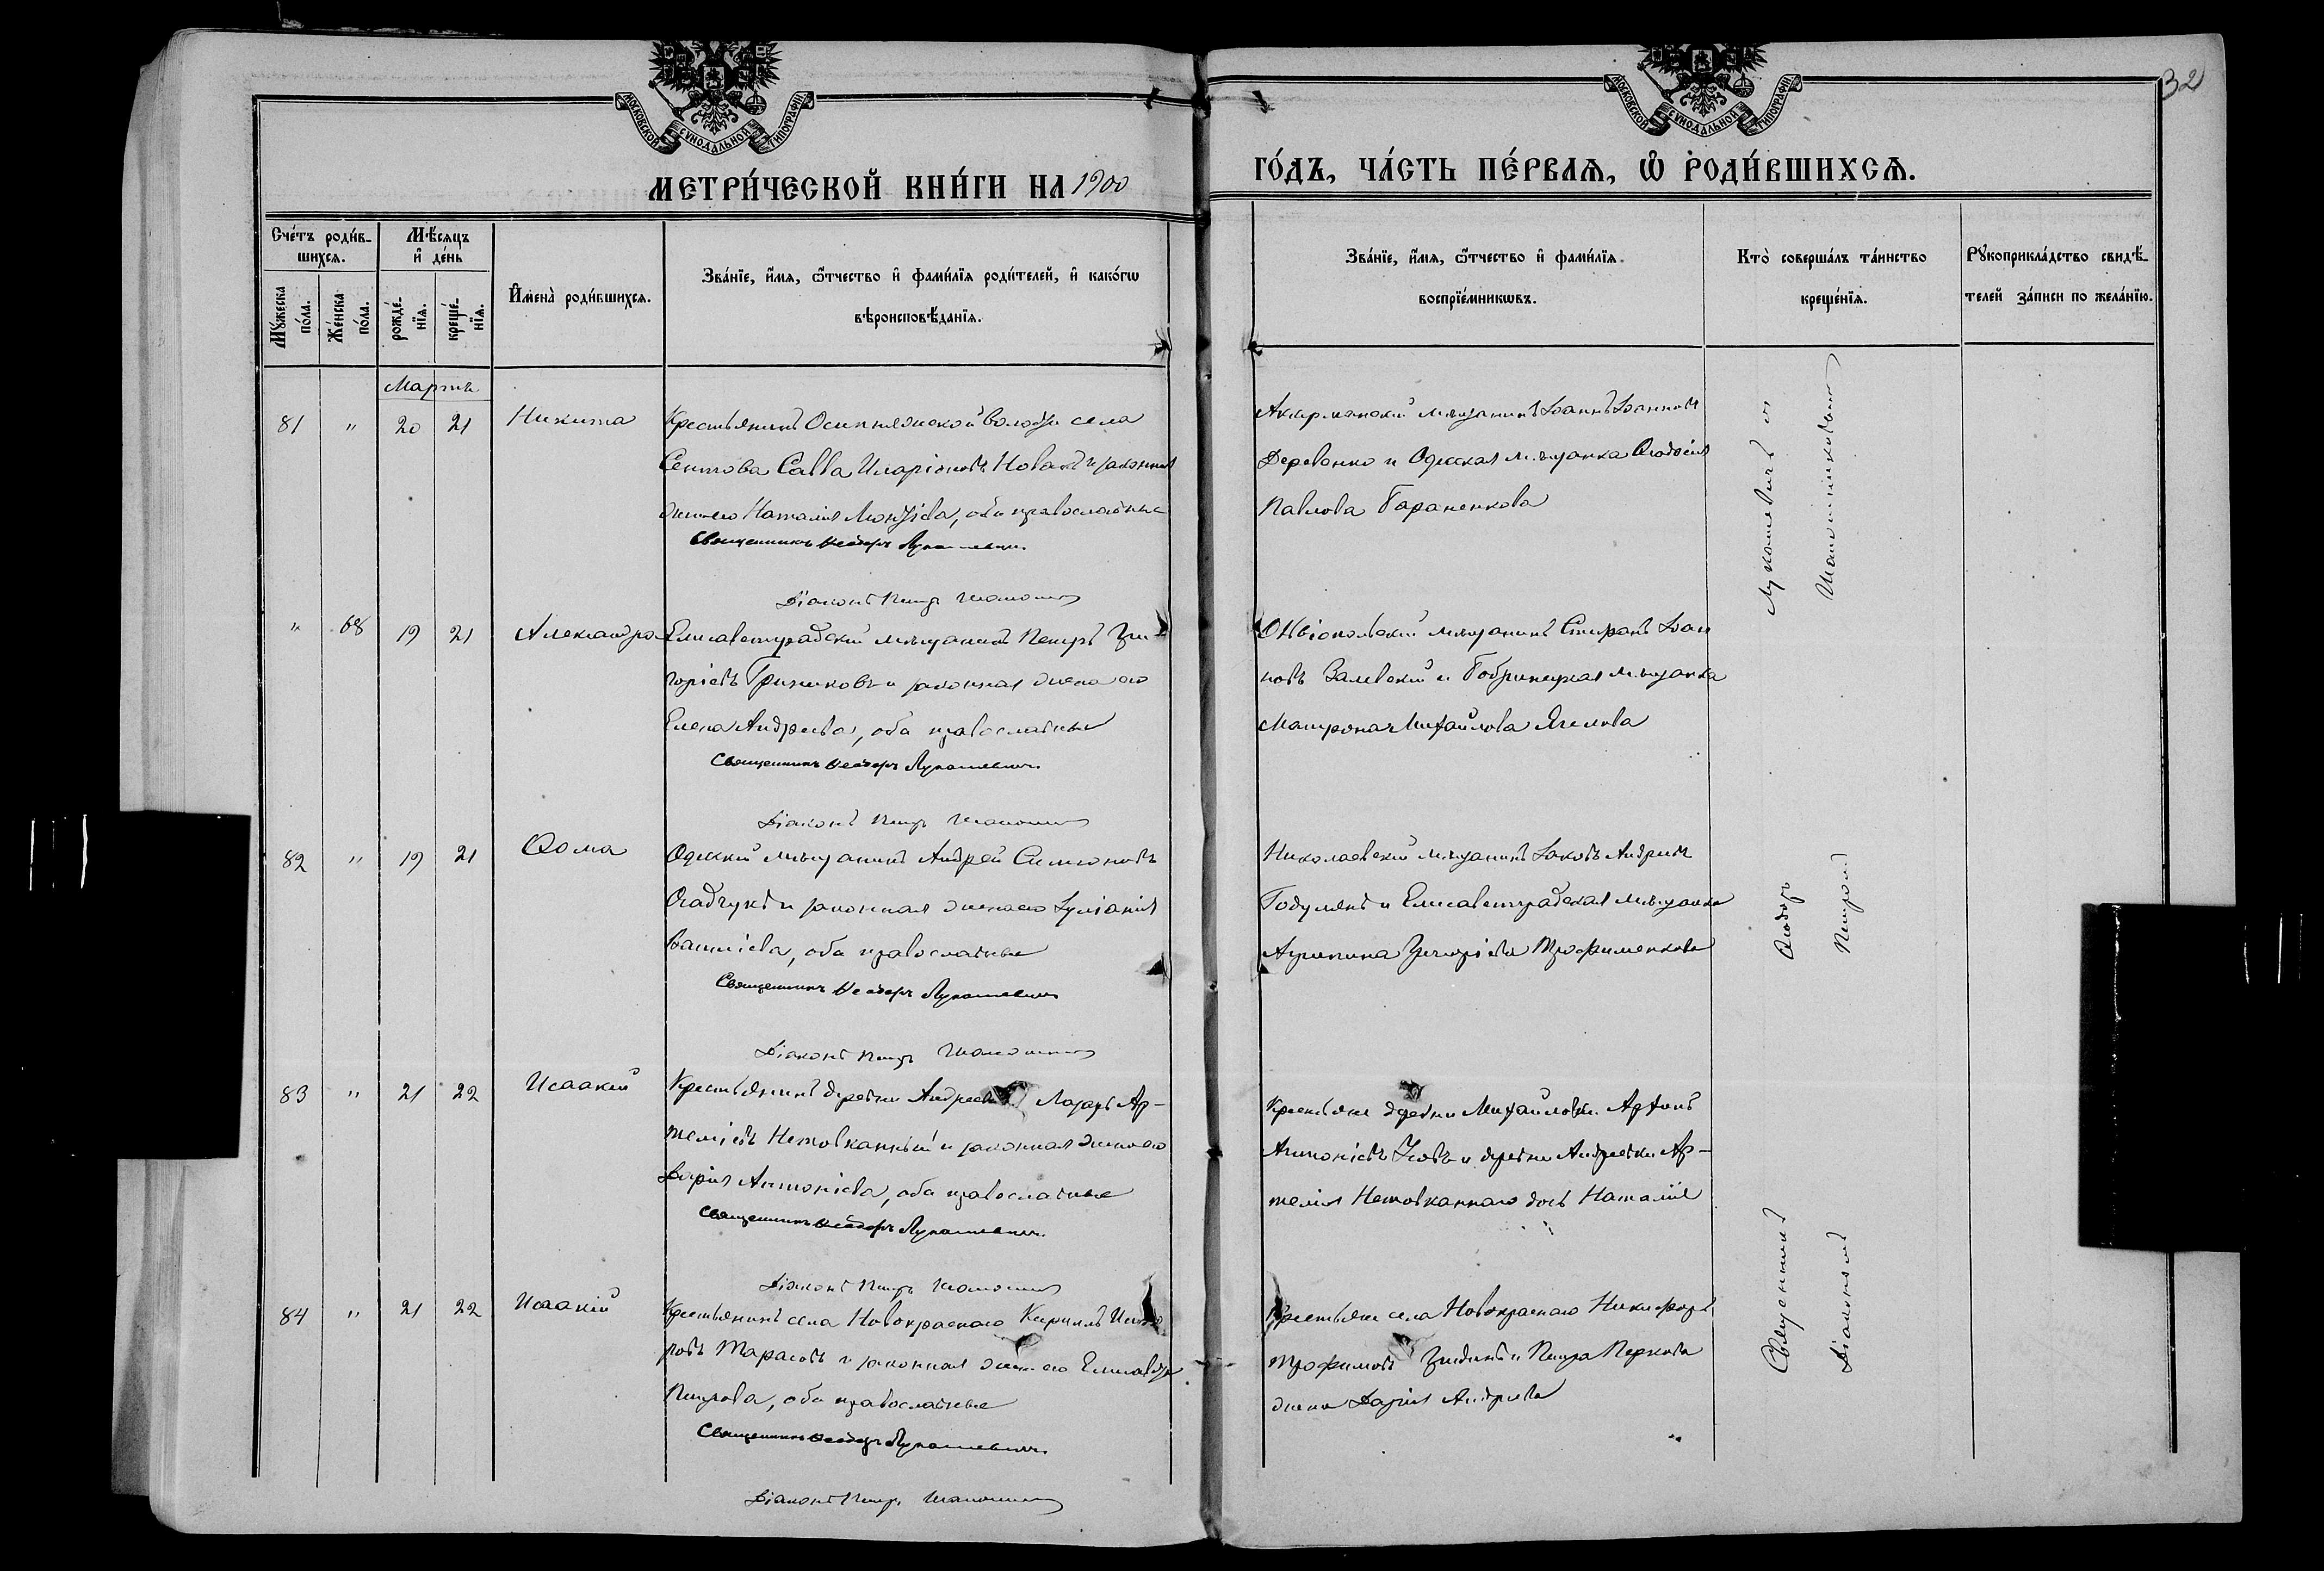 32
МОСКОВСКОЙ СѴНОДАЛЬНОЙ ТИПОГРАФІИ
МОСКОВСКОЙ СѴНОДАЛЬНОЙ ТИПОГРАФІИ
МЕТРИ́ЧЕСКОЙ КНИ́ГИ НА 1900
ГО́ДЪ, ЧА́СТЬ ПЕ́РВАѦ, Ѡ҆ РОДИ́ВШИХСѦ.
Сче́тъ роди́в-
шихсѧ.
Мѣ́сѧцъ
и҆ де́нь
Мꙋжеска
по́ла.
Же́нска
по́ла.
рожде́-
нїѧ.
креще́-
нїѧ.
И҆мена̀ роди́вшихсѧ.
Зва́нїе, и҆́мѧ, ѻ҆́тчество и҆ фами́лїѧ роди́телей, и҆ како́гѡ
вѣроисповѣ́данїѧ.
Зва́нїе, и҆́мѧ, ѻ҆́тчество и҆ фами́лїѧ
воспрїе́мникѡвъ.
Кто̀ соверша́лъ та́инство
креще́нїѧ.
Рꙋкоприкла́дство свидѣ́-
телей за́писи по жела́нїю.
Мартъ
81 " 20 21 Никита
Крестьянинъ волости села
Савва Иларіоновъ Новакъ и законная
жена его Наталія, оба православные
Священникъ Ѳеодоръ Лукашевичъ.
Діаконъ Петръ
Аккерманскій мѣщанинъ Іоаннъ Іоанновъ
Деревянко и Одесская мѣщанка Ѳеодосія
Павлова Бараненкова
" 68 19 21 Александра
Елисаветградскій мѣщанинъ Петръ Гри-
горіевъ и законная жена его
Елена Андреева, оба православные
Священникъ Ѳеодоръ Лукашевичъ.
Діаконъ Петръ
Овидіопольскій мѣщанинъ Стефанъ Іоан
новъ Залевскій и Бобринецкая мѣщанка
Матрона Михайлова
82 " 19 21 Ѳома
Одесскій мѣщанинъ Андрей Симеоновъ
Осадчукъ и законная жена его Іуліанія
Василіева, оба православные
Священникъ Ѳеодоръ Лукашевичъ
Діаконъ Петръ
Николаевскій мѣщанинъ Іаковъ Андреевъ
и Елисаветградская мѣщанка
Агрипина Григоріева Трофименкова
83 " 21 22 Исаакій
Крестьянинъ деревни Андреевки Лазарь Ар-
теміевъ Нетовканный и законная жена его
Дарія Антоніева, оба православные
Священникъ Ѳеодоръ Лукашевичъ.
Діаконъ Петръ
Крестьяне деревни Михайловки
Антоніевъ и деревни Андреевки Ар-
темія Нетовканнаго дочь Наталія
84 " 21 22 Исаакій
Крестьянинъ села Новокраснаго Кириллъ
Тарасовъ и законная жена его Елисавета
Петрова, оба православные
Священникъ Ѳеодоръ Лукашевичъ.
Діаконъ Петръ
Крестьяне села Новокраснаго Никифоръ
Трофимовъ и Петра Перкова
жена Дарія Андреева
Священникъ Ѳеодоръ Лукашевичъ съ
Діакономъ Петромъ